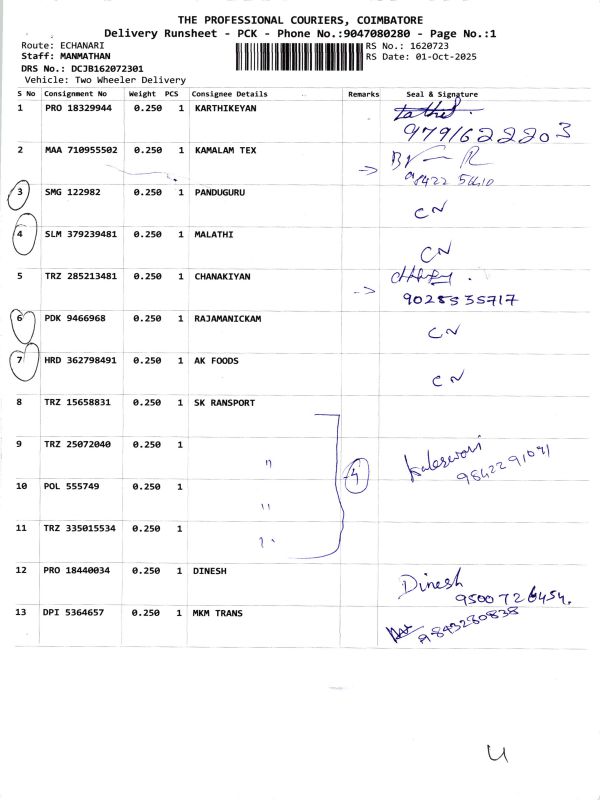 THE PROFESSIONAL COURIERS, COIMBATORE
Delivery Runsheet - PCK - Phone No.:9047080280 - Page No.:1
Route: ECHANARI RS No.: 1620723
Staff: MANMATHAN RS Date: 01-Oct-2025
DRS No.: DCJB162072301
Vehicle: Two Wheeler Delivery
S No Consignment No Weight PCS Consignee Details Remarks Seal & Signature
1 PRO 18329944 0.250 1 KARTHIKEYAN
9791622203
2 MAA 710955502 0.250 1 KAMALAM TEX
3 SMG 122982 0.250 1 PANDUGURU CN
4 SLM 379239481 0.250 1 MALATHI CN
5 TRZ 285213481 0.250 1 CHANAKIYAN
9028535717
6 PDK 9466968 0.250 1 RAJAMANICKAM CN
7 HRD 362798491 0.250 1 AK FOODS CN
8 TRZ 15658831 0.250 1 SK RANSPORT
9 TRZ 25072040 0.250 1 " 4
9842291071
10 POL 555749 0.250 1 "
11 TRZ 335015534 0.250 1 "
12 PRO 18440034 0.250 1 DINESH Dinesh
9500726454.
13 DPI 5364657 0.250 1 MKM TRANS 9843280838
4